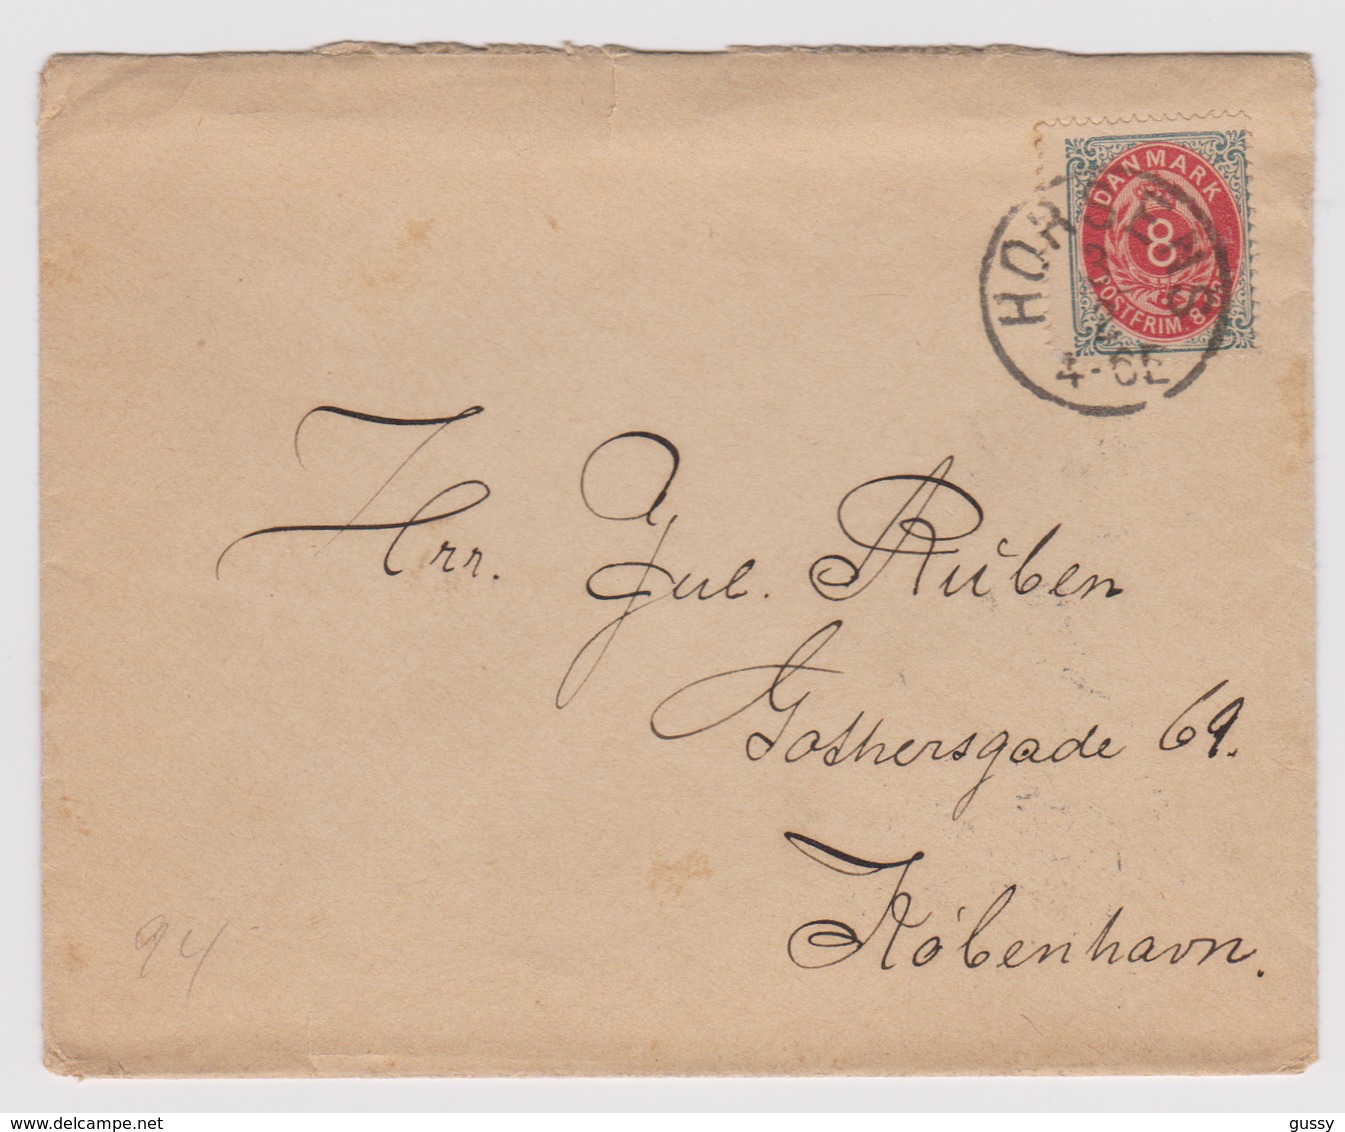 DANMARK
8
POSTFRIM. 8
HORSENS
4-5E
Hrr. Jul. Ruben
Gothersgade 69.
København.
94
www.delcampe.net
gussy